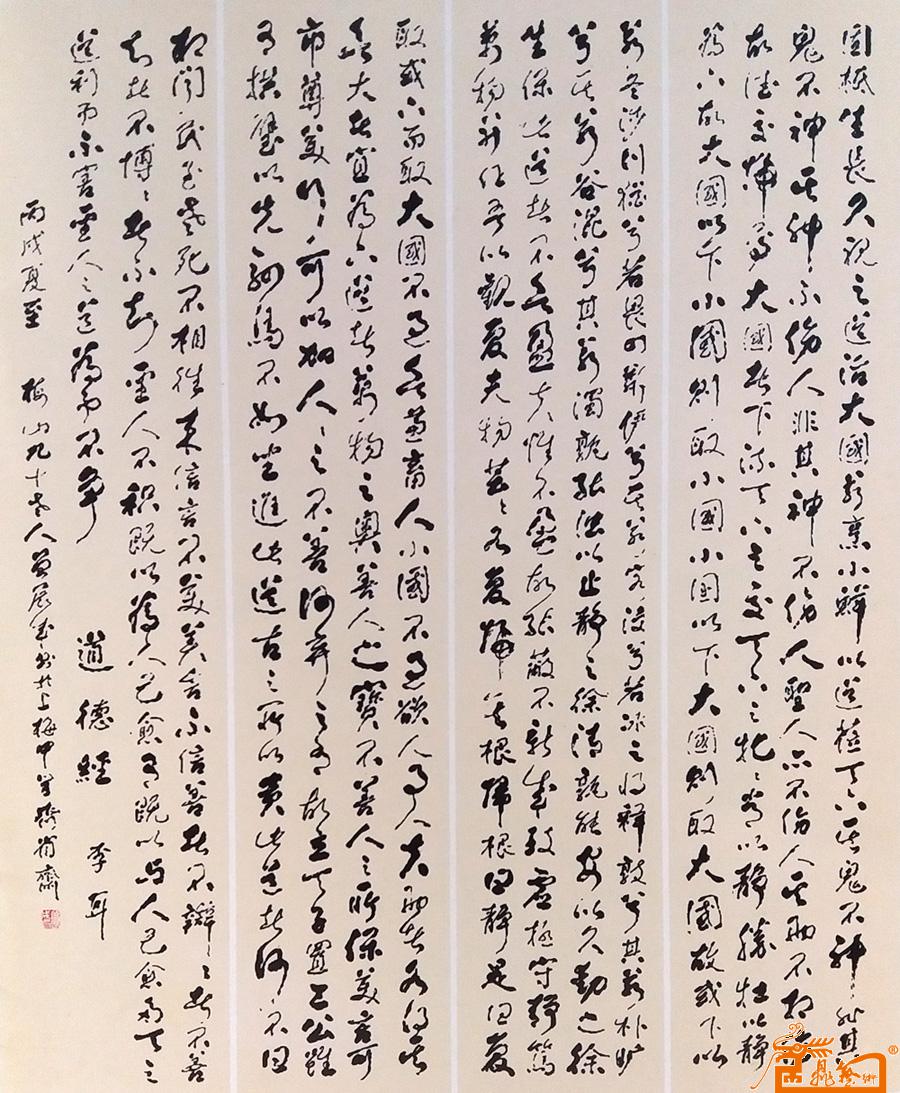 固柢生長久視之道治大國若烹小鮮以道莅天下其鬼不神非其
鬼不神其神不傷人非其神不傷人聖人亦不傷人夫兩不相傷
故德交歸焉大國者下流天下之交天下之牝牝常以靜勝牡以靜
為下故大國以下小國則取小國小國以下大國則取大國故或下以
若冬涉川猶兮若畏四鄰兮其若客渙兮若冰之將釋敦兮其若朴曠
兮其若谷混兮其若濁孰能濁以止靜之徐清孰能安以久動之徐
生保此道者不欲盈夫惟不盈故能蔽不新成致虛極守靜篤
萬物並作吾以觀復夫物芸芸各復歸其根歸根曰靜是曰復
取或下而取大國不過欲兼畜人小國不過欲入事人夫兩者各得其
欲大者宜為下道者萬物之奧善人之寶不善人之所保美言可
市尊美行行可以加人人之不善何棄之有故立天子置三公雖
有拱璧以先駟馬不如坐進此道古之所以貴此道者何不曰
相聞民至老死不相往來信言不美美言不信善者不辯辯者不善
知者不博博者不知聖人不積既以為人己愈有既以與人己愈多天之
道利而不害聖人之道為而不爭
道德經 李耳
丙戌夏至 梅山九十老人曾展書於上梅中學齋